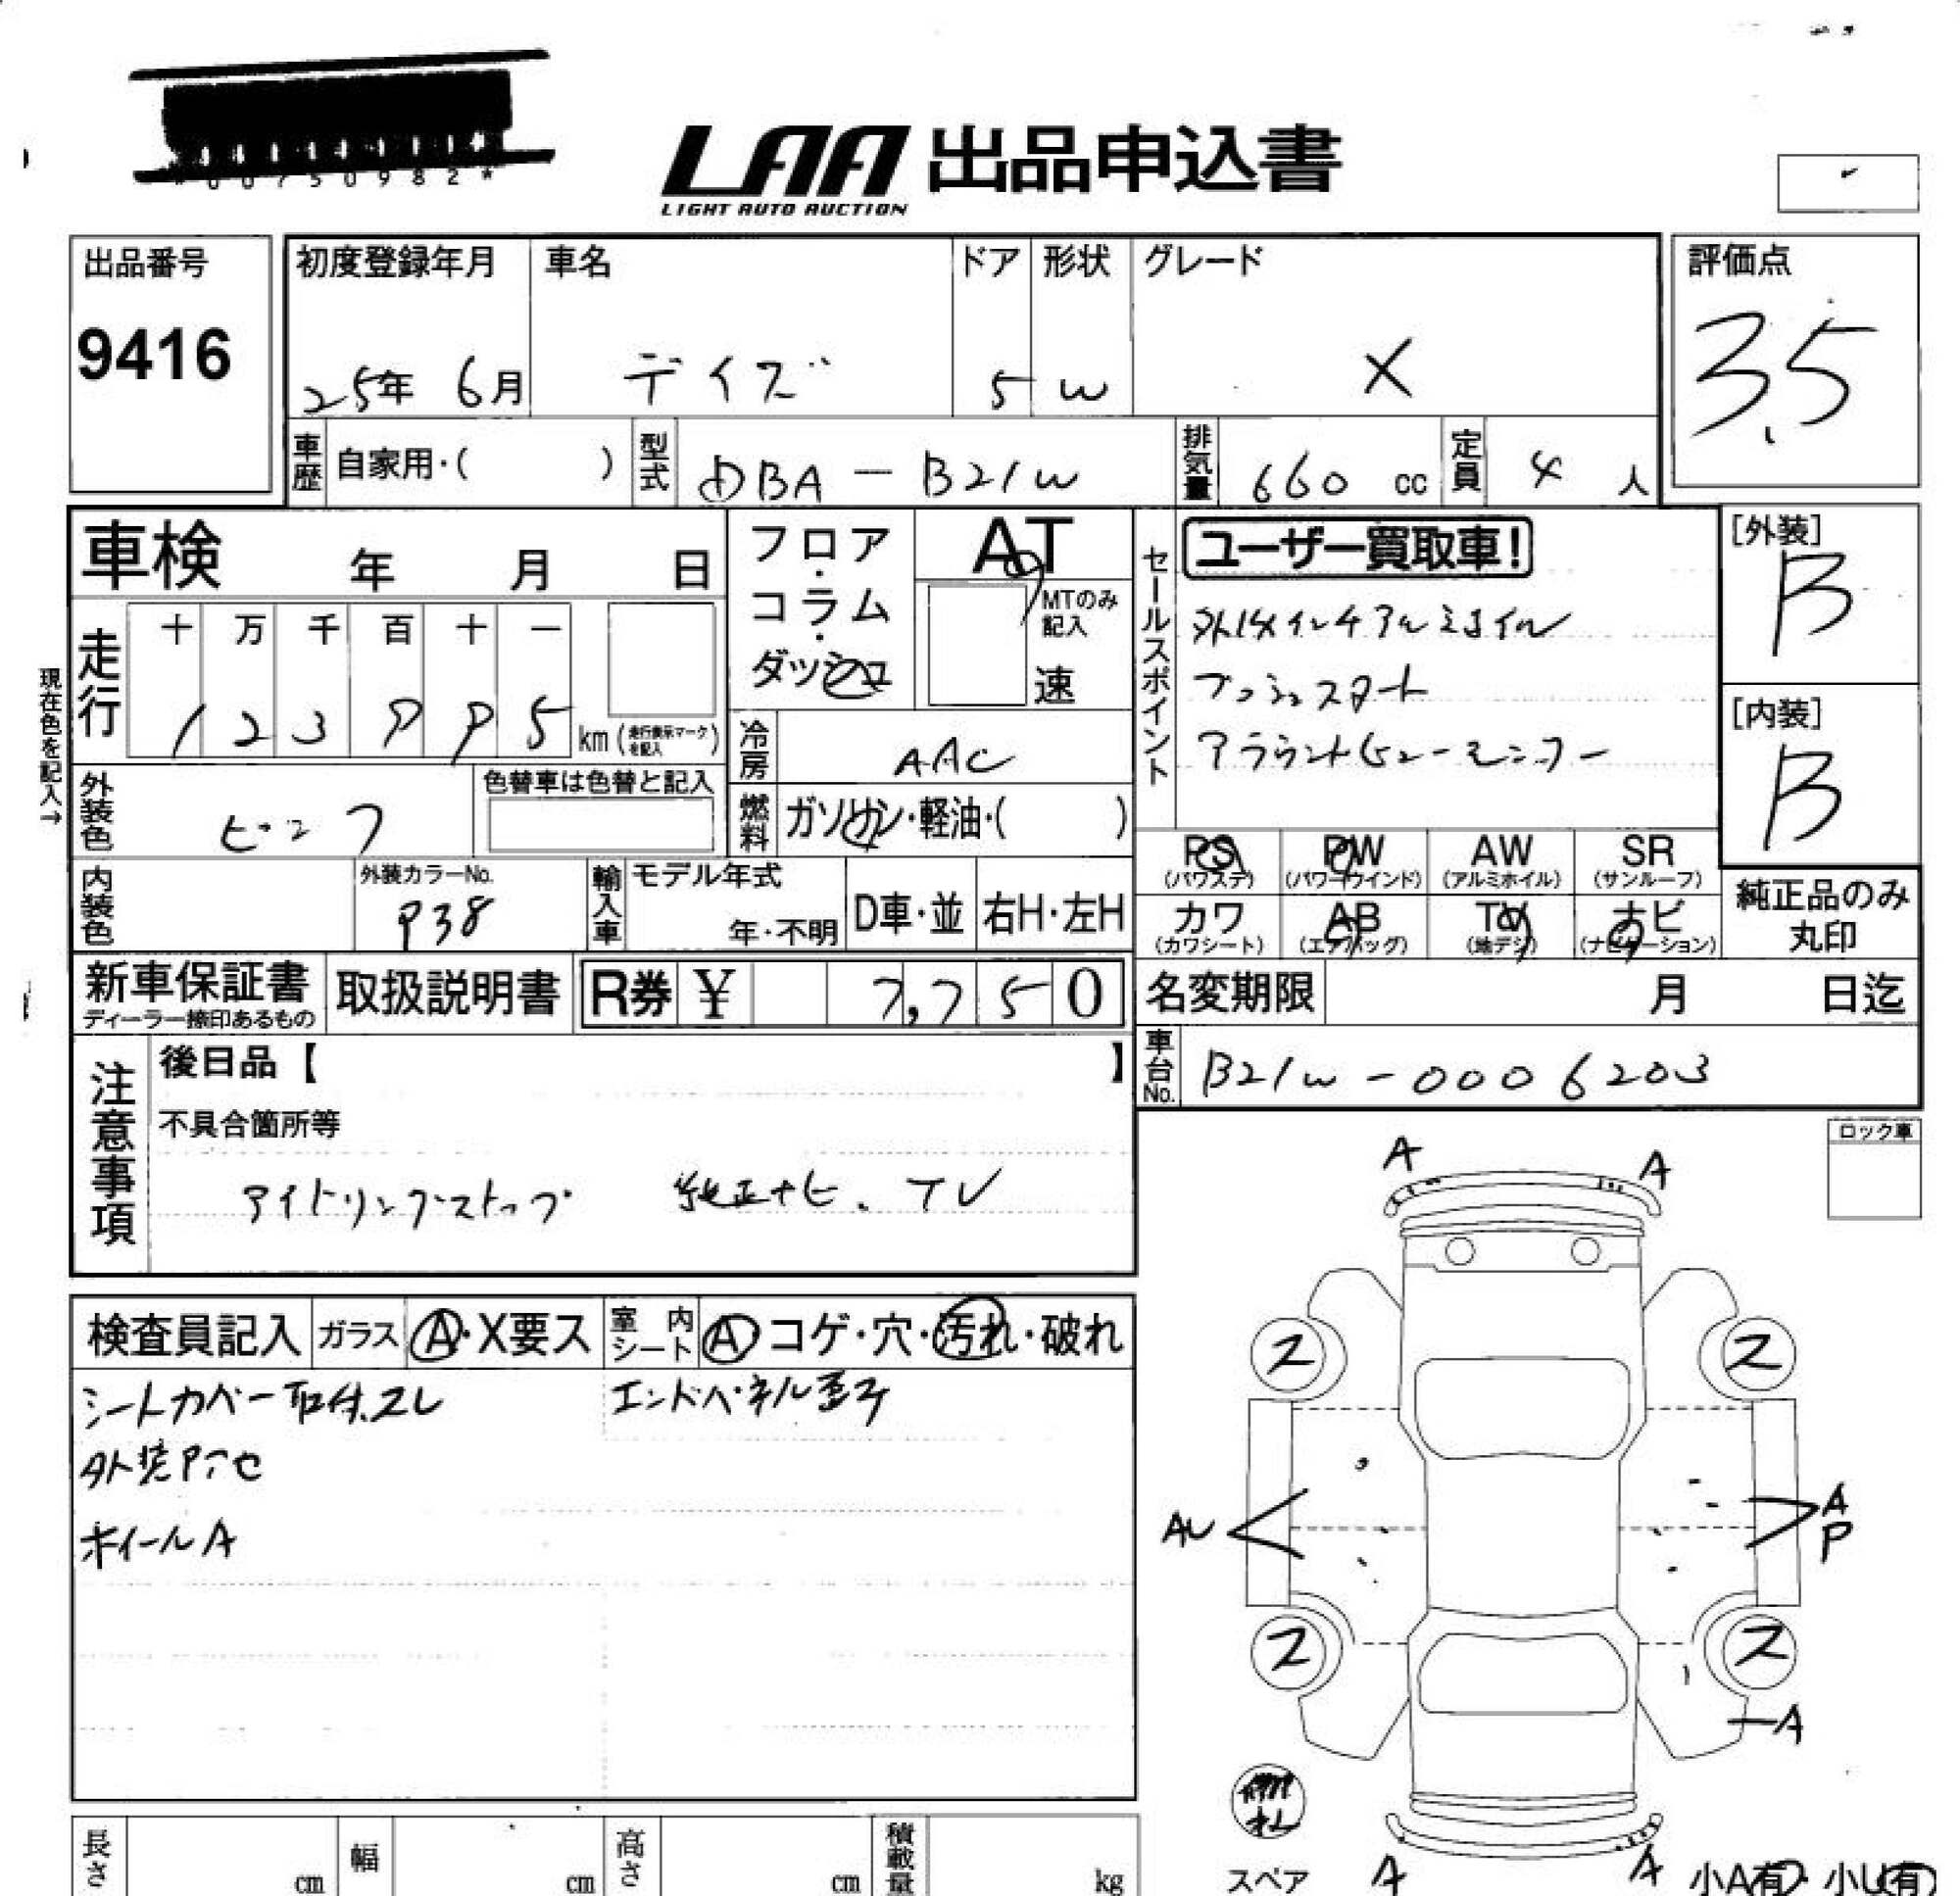 *00750982*
LAA 出品申込書
LIGHT AUTO AUCTION
出品番号
9416
初度登録年月
25年 6月
車名
デイズ
ドア
5
形状
W
グレード
X
評価点
3.5
車歴 自家用・( )
型式 DBA-B21W
排気量 660 cc
定員 4 人
車検 年 月 日
フロア・コラム・ダッシュ
AT
MTのみ記入
速
セールスポイント
ユーザー買取車!
プッシュスタート
[外装]
B
[内装]
B
現在色を記入→
走行
十 万 千 百 十 一
km (走行表示マークを記入)
冷房 AAC
外装色
ピンク
色替車は色替と記入
燃料 ガソリン・軽油・( )
PS (パワステ)
PW (パワーウインド)
AW (アルミホイル)
SR (サンルーフ)
内装色
外装カラーNo.
輸入車
モデル年式
年・不明
D車・並
右H・左H
カワ (カワシート)
AB (エアバッグ)
TV (地デジ)
ナビ (ナビゲーション)
純正品のみ丸印
新車保証書
ディーラー捺印あるもの
取扱説明書
R券 ¥ 7,750
名変期限 月 日迄
車台No. B21W-0006203
注意事項
後日品【 】
不具合箇所等
アイドリングストップ 純正ナビ. TV
ロック車
検査員記入
ガラス A・X要ス
室内シート A コゲ・穴・汚れ・破れ
シートカバー取付.スレ
エンドパネル歪み
ホイールA
A A
ス ス
AU
A
P
ス ス
A
スペア
A A
小A有 小U有
長さ cm
幅 cm
高さ cm
積載量 kg